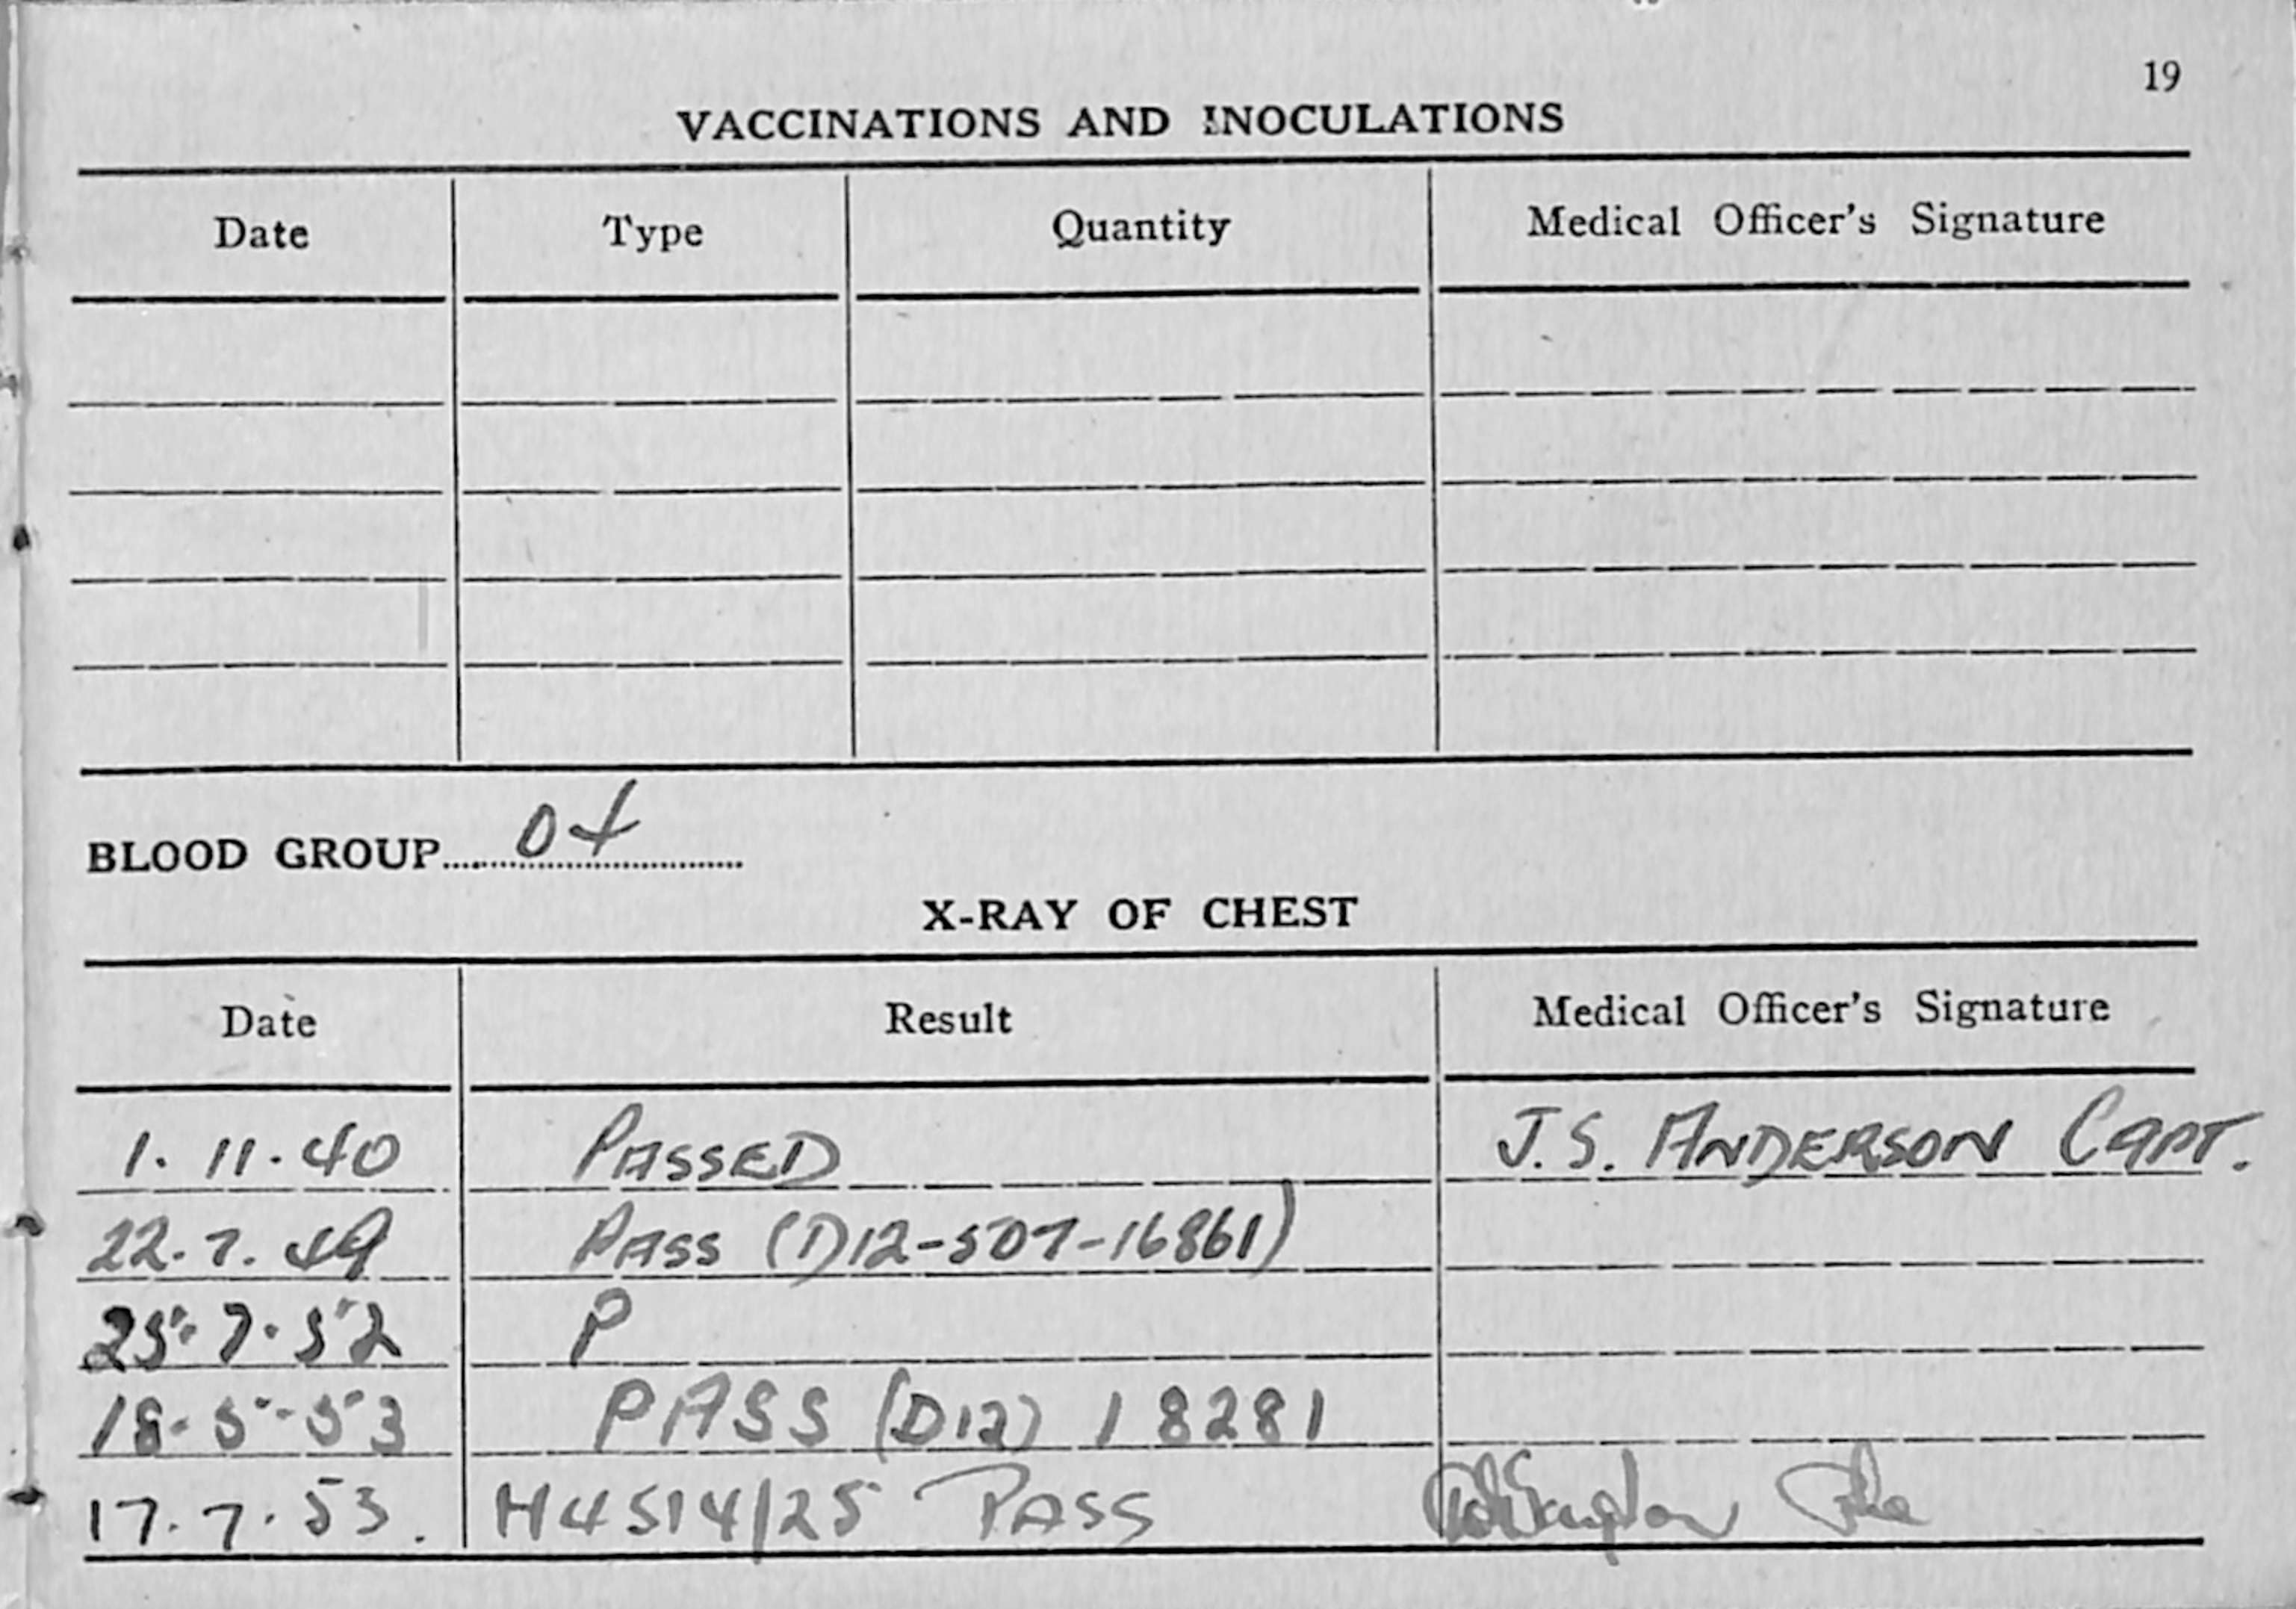 19
VACCINATIONS AND INOCULATIONS
Date Type Quantity Medical Officer's Signature
BLOOD GROUP........ O+
X-RAY OF CHEST
Date Result Medical Officer's Signature
1. 11. 40 PASSED J.S. ANDERSON CAPT.
22. 7. 49 PASS (D12-507-16861)
25. 7. 52 P
18. 5. 53 PASS (D12) 18281
17. 7. 53. H4514/25 PASS